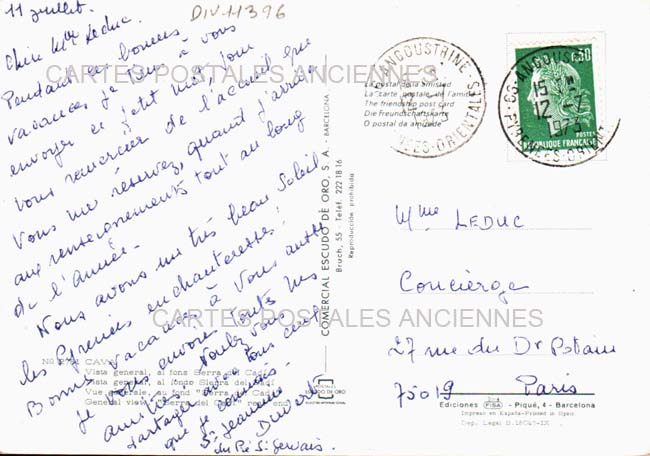 11 juillet.
DIV11396
Chère Mme Leduc.
Pendant ces bonnes
vacances je pense à vous
envoyer un petit mot pour
vous remercier de l'accueil que
vous me réservez, quand j'arrive
aux renseignements tout au long
de l'année.
Nous avons un très beau soleil
les Pyrénées enchanteresses!
Bonnes vacances à vous aussi
je vous envoie toutes mes
amitiés. Voulez vous
partager avec tous ceux
que je connais.
Sr Jeanne
du Pré St Gervais.
CARTES POSTALES ANCIENNES
CARTES POSTALES ANCIENNES
Vista general, al fondo Sierra del Cadí
COMERCIAL ESCUDO DE ORO, S. A. - BARCELONA
Bruch, 55 - Teléf. 222 18 16
Reproducción prohibida
La postal de la amistad
La carte postale de l'amitié
The friendship post card
Die Freundschaftskarte
O postal da amizade
66 ANGOUSTRINE
PYRÉNÉES-ORIENTALES
15 H
12 - 7
1973
0,30
POSTES
REPUBLIQUE FRANÇAISE
Mme LEDUC
Concierge
27 rue du Dr Potain
75019 Paris
Ediciones FISA - Piqué, 4 - Barcelona
Impreso en España-Printed in Spain